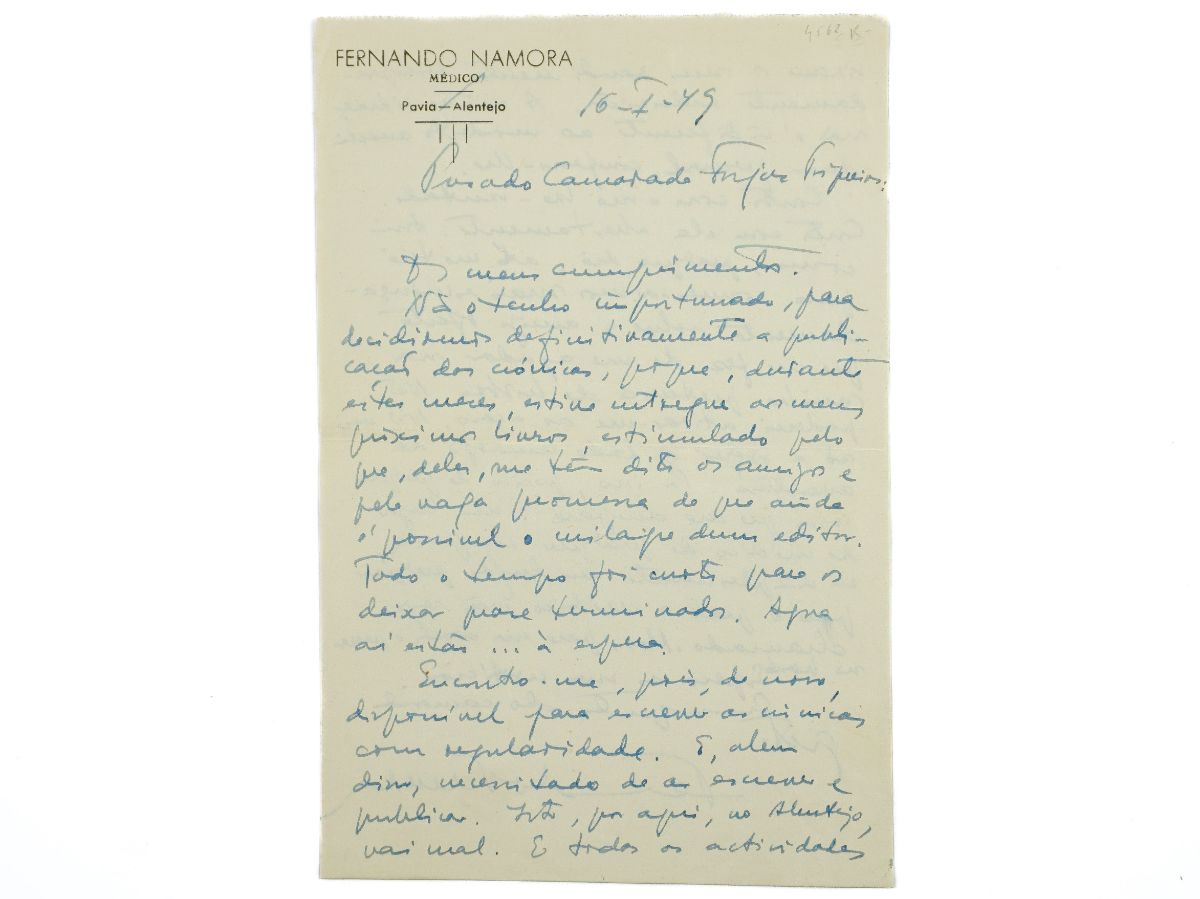 FERNANDO NAMORA
MÉDICO
Pavia—Alentejo
16-I-49
Prezado Camarada Forjaz Trigueiros:
Os meus cumprimentos.
Não o tenho importunado, para
decidirmos definitivamente a publi-
cação das crónicas, porque, durante
estes meses, estive entregue aos meus
próximos livros, estimulado pelo
que, deles, me têm dito os amigos e
pela vaga promessa de que ainda
é possível o milagre dum editor.
Todo o tempo foi curto para os
deixar quase terminados. Agora
aí estão... à espera.
Encontro-me, pois, de novo,
disponível para escrever as crónicas
com regularidade. E, alem
disso, necessitado de as escrever e
publicar. Isto, por aqui, no Alentejo,
vai mal. E todas as actividades